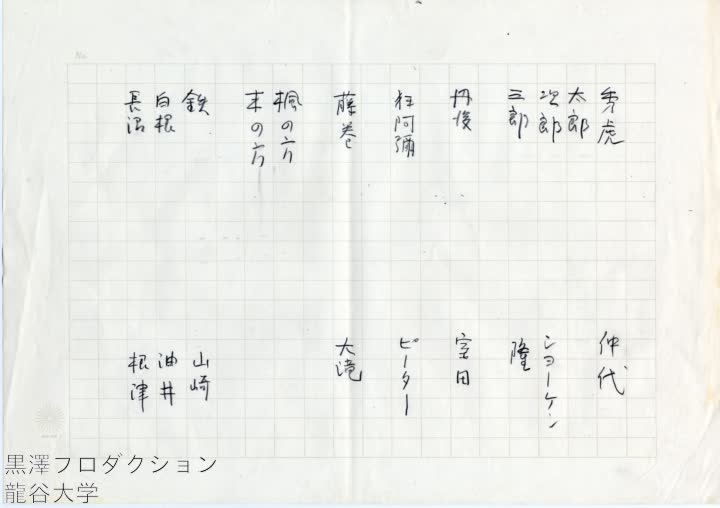 秀虎 仲代
太郎
次郎 ショーケン
三郎 隆
丹後 室田
狂阿彌 ピーター
藤巻 大滝
楓の方
末の方
鉄 山崎
白根 油井
長沼 根津
黒澤プロダクション
龍谷大学